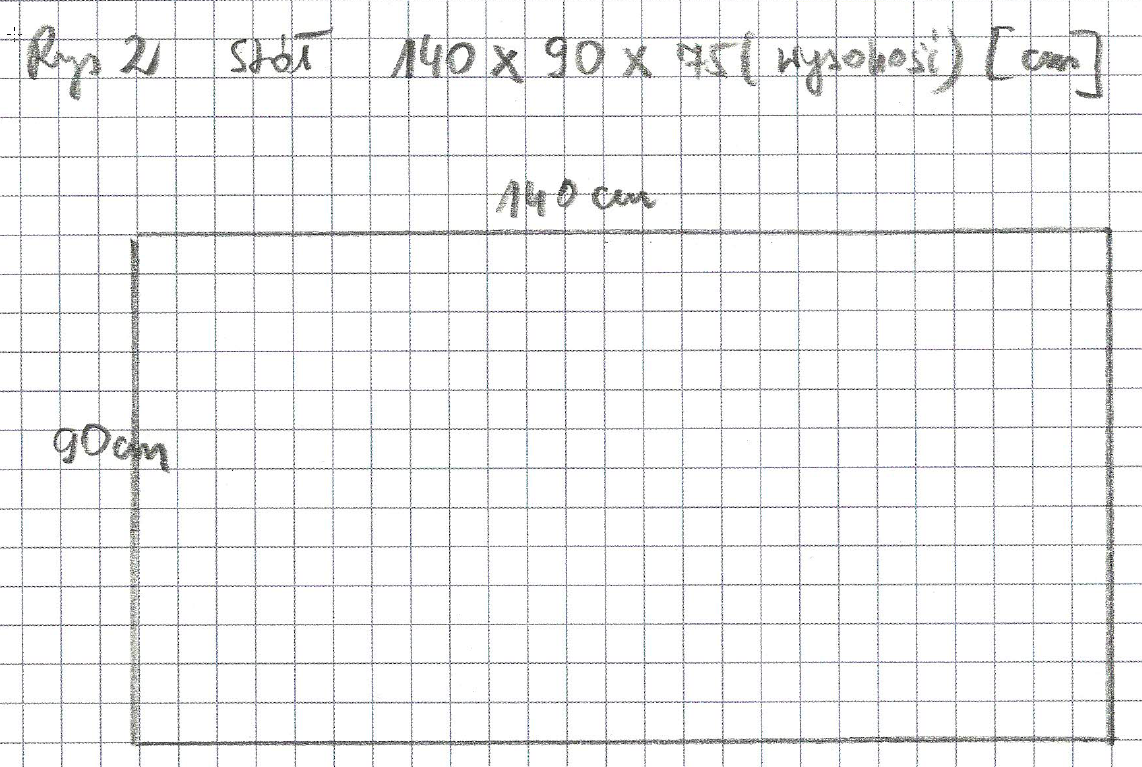 Rys 2 Stół 140 x 90 x 75 (wysokość) [cm]
140 cm
90cm